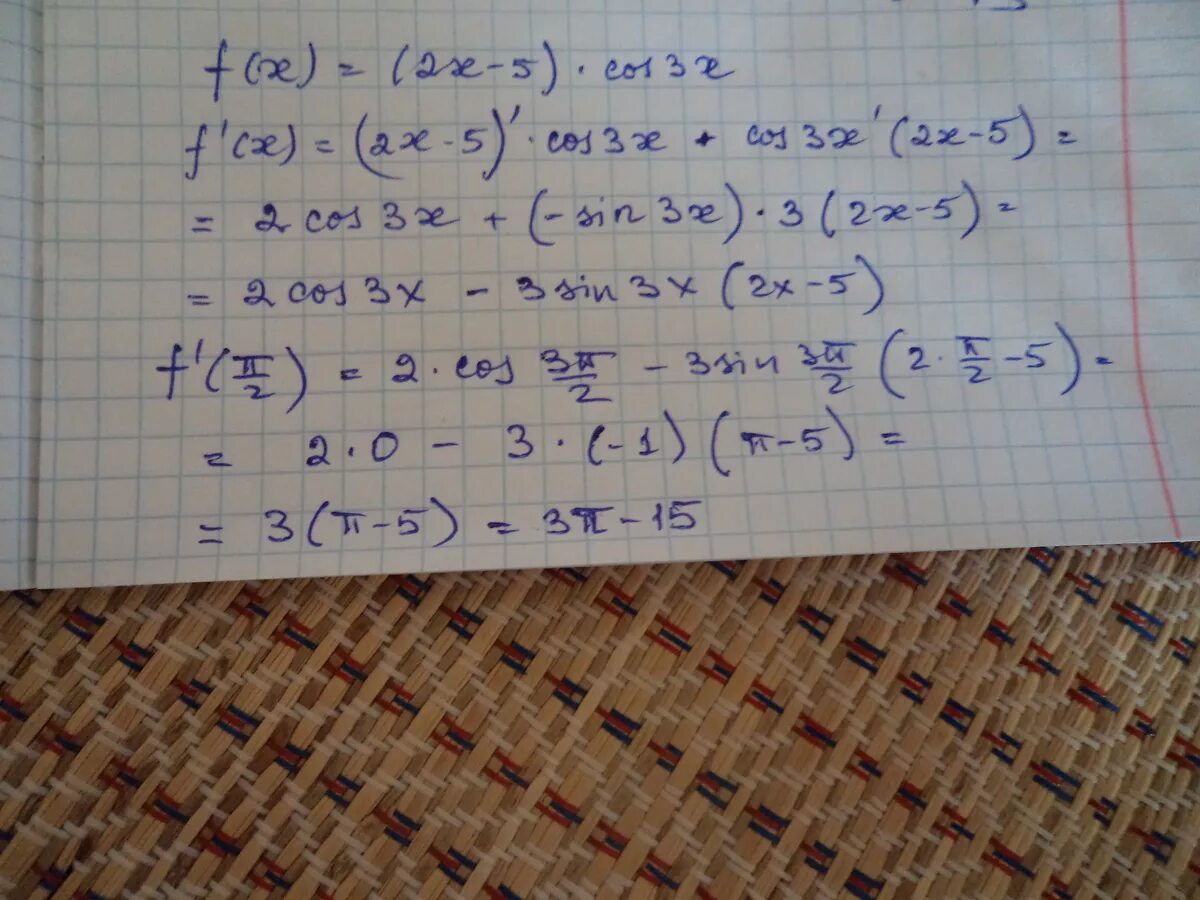 f(x) = (2x-5) · cos3x
f'(x) = (2x-5)' · cos3x + cos3x'(2x-5) =
= 2cos3x + (-sin3x) · 3(2x-5) =
= 2cos3x - 3sin3x(2x-5)
f'(π/2) = 2 · cos 3π/2 - 3sin 3π/2 (2 · π/2 - 5) =
= 2 · 0 - 3 · (-1)(π-5) =
= 3(π-5) = 3π-15